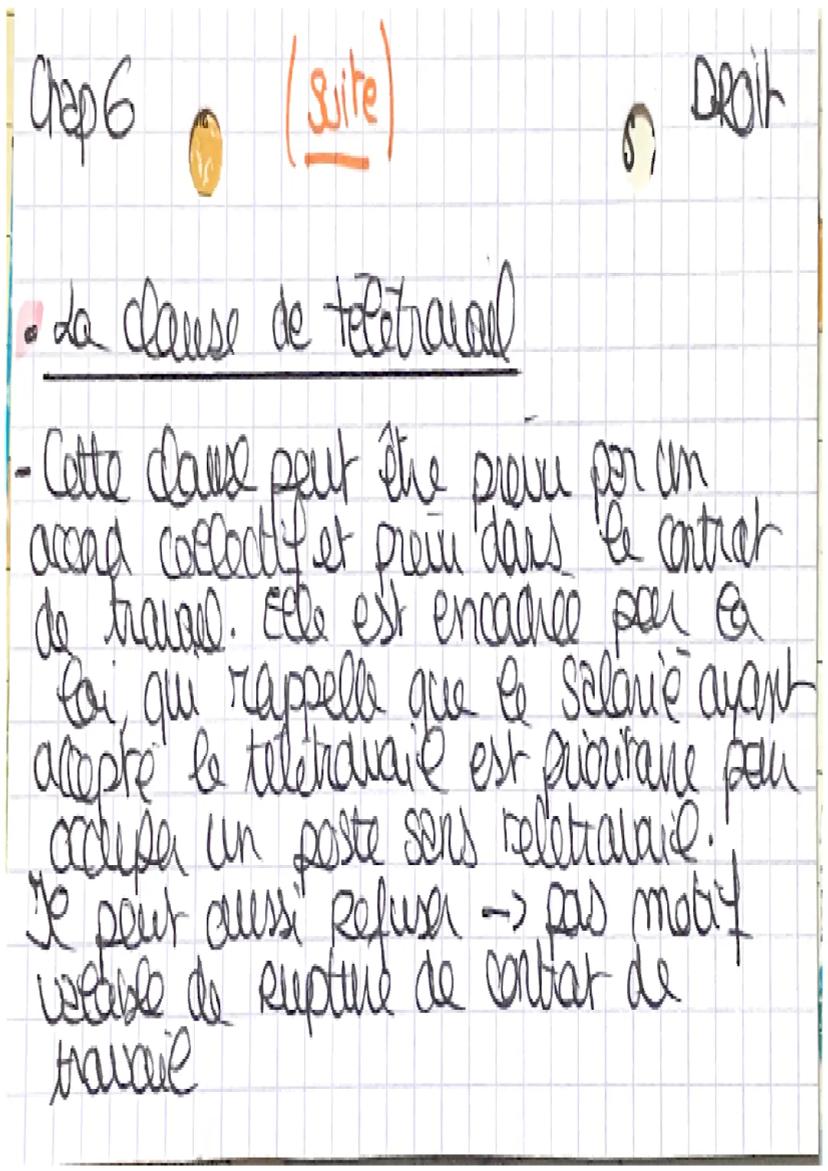 Chap 6 (Suite) DROIT
• La clause de télétravail
- Cette clause peut être prévu par un
accord collectif et prévu dans le contrat
de travail. Elle est encadrée par la
loi, qui rappelle que le salarié ayant
accepté le télétravail est prioritaire pour
occuper un poste sans télétravail.
Il peut aussi refuser -> pas motif
valable de rupture de contrat de
travail